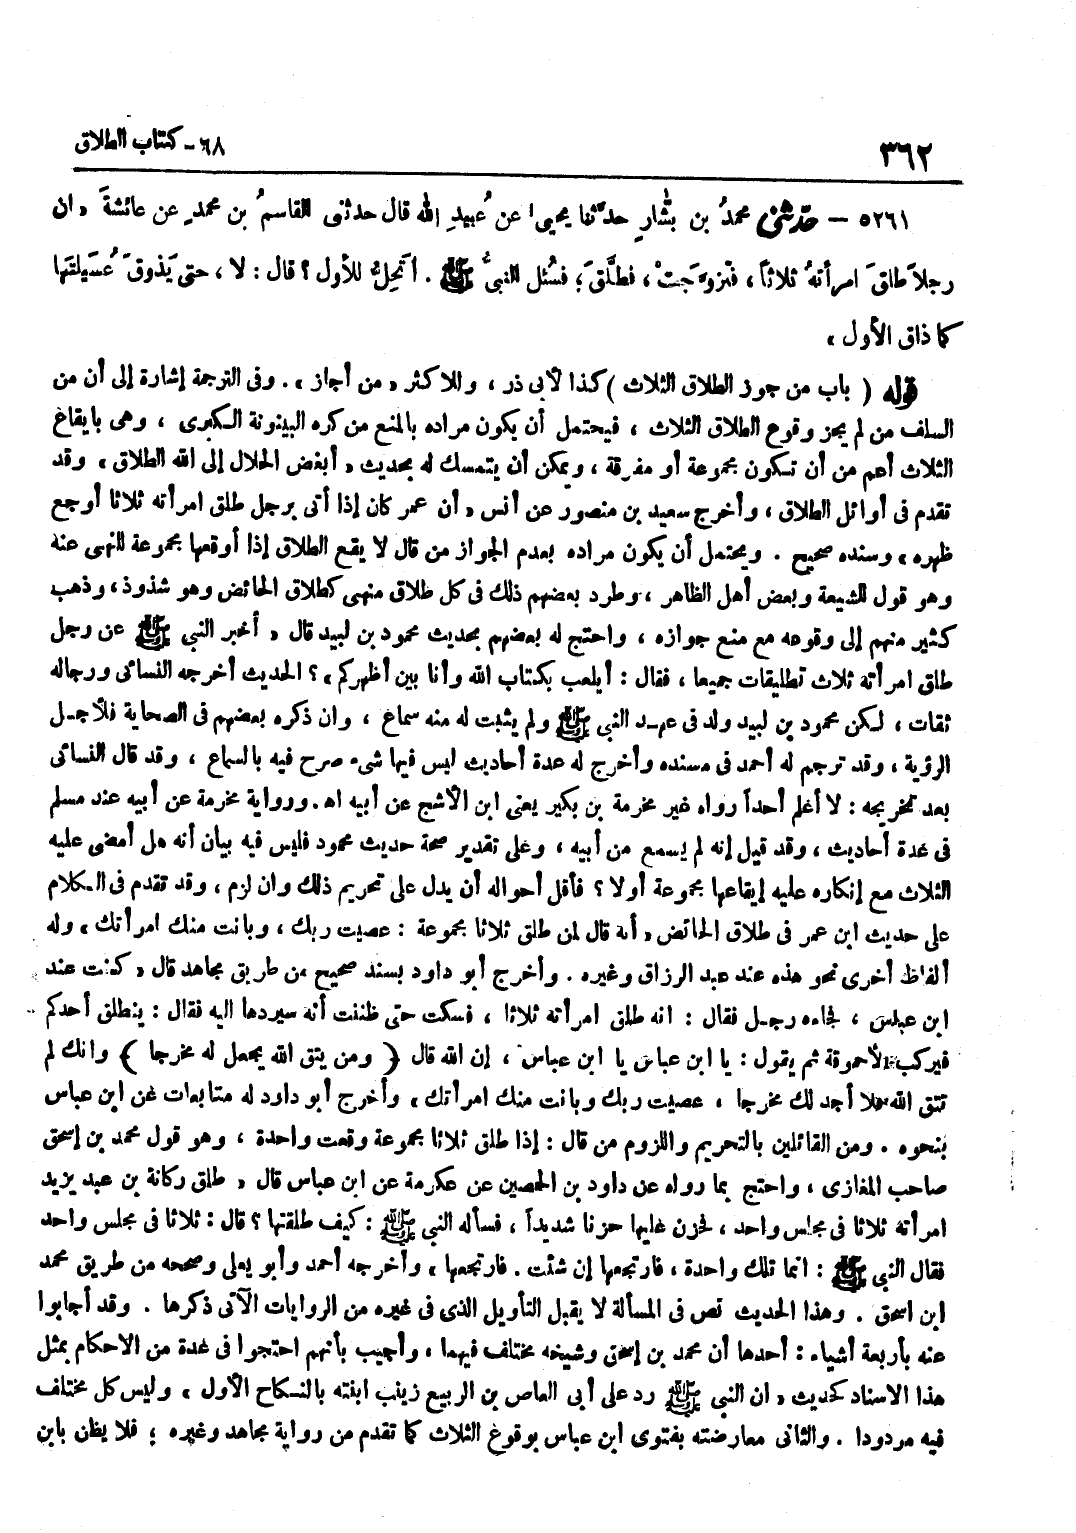 ٣٦٢
٦٨- كتاب الطلاق
٥٢٦١ - حدثني محمدُ بن بشّارٍ حدَّثنا يحيى عن عُبيدِ الله قال حدثنى القاسمُ بن محمدٍ عن عائشةَ « ان
رجلاً طلقَ امرأتهُ ثلاثاً ، فتزوَّجَتْ ، فطلَّقَ ؛ فسُئل النبىُّ ﷺ . أتحِلُّ للأول ؟ قال : لا ، حتى يَذوقَ عُسَيلتَها
كما ذاق الأول »
قوله ( باب من جوز الطلاق الثلاث ) كذا لأبى ذر ، وللاكثر « من أجاز » . وفى الترجمة إشارة إلى أن من
السلف من لم يجز وقوع الطلاق الثلاث ، فيحتمل أن يكون مراده بالمنع من كره البينونة الكبرى ، وهى بايقاع
الثلاث أعم من أن تسكون مجموعة أو مفرقة ، ويمكن أن يتمسك له بحديث « أبغض الحلال إلى الله الطلاق » وقد
تقدم فى أوائل الطلاق ، وأخرج سعيد بن منصور عن أنس « أن عمر كان إذا أتى برجل طلق امرأته ثلاثا أوجع
ظهره » وسنده صحيح . ويحتمل أن يكون مراده بعدم الجواز من قال لا يقع الطلاق إذا أوقعها مجموعة للنهى عنه
وهو قول للشيعة وبعض أهل الظاهر ، وطرد بعضهم ذلك فى كل طلاق منهى كطلاق الحائض وهو شذوذ ، وذهب
كثير منهم إلى وقوعه مع منع جوازه ، واحتج له بعضهم بحديث محمود بن لبيد قال « أخبر النبى ﷺ عن رجل
طلق امرأته ثلاث تطليقات جميعا ، فقال : أيلعب بكتاب الله وأنا بين أظهركم » ؟ الحديث أخرجه النسائى ورجاله
ثقات ، لكن محمود بن لبيد ولد فى عهد النبى ﷺ ولم يثبت له منه سماع ، وان ذكره بعضهم فى الصحابة فلأجل
الرؤية ، وقد ترجم له أحمد فى مسنده وأخرج له عدة أحاديث ليس فيها شىء صرح فيه بالسماع ، وقد قال النسائى
بعد تخريجه : لا أعلم أحداً رواه غير مخرمة بن بكير يعنى ابن الأشج عن أبيه اه . ورواية مخرمة عن أبيه عند مسلم
فى عدة أحاديث ، وقد قيل إنه لم يسمع من أبيه ، وعلى تقدير صحة حديث محمود فليس فيه بيان أنه هل أمضى عليه
الثلاث مع إنكاره عليه إيقاعها مجموعة أولا ؟ فأقل أحواله أن يدل على تحريم ذلك وان لزم ، وقد تقدم فى الكلام
على حديث ابن عمر فى طلاق الحائض « أنه قال لمن طلق ثلاثا مجموعة : عصيت ربك ، وبانت منك امرأتك » وله
ألفاظ أخرى نحو هذه عند عبد الرزاق وغيره . وأخرج أبو داود بسند صحيح من طريق مجاهد قال « كنت عند
ابن عباس ، فجاءه رجل فقال : انه طلق امرأته ثلاثا ، فسكت حتى ظننت أنه سيردها اليه فقال : ينطلق أحدكم
فيركب الأحموقة ثم يقول : يا ابن عباس يا ابن عباس ، إن الله قال ﴿ ومن يتق الله يجعل له مخرجا ﴾ وانك لم
تتق الله فلا أجد لك مخرجا ، عصيت ربك وبانت منك امرأتك » وأخرج أبو داود له متابعات عن ابن عباس
بنحوه . ومن القائلين بالتحريم واللزوم من قال : إذا طلق ثلاثا مجموعة وقعت واحدة ، وهو قول محمد بن إسحق
صاحب المغازى ، واحتج بما رواه عن داود بن الحصين عن عكرمة عن ابن عباس قال « طلق ركانة بن عبد يزيد
امرأته ثلاثا فى مجلس واحد ، فحزن عليها حزنا شديداً ، فسأله النبى ﷺ : كيف طلقتها ؟ قال : ثلاثا فى مجلس واحد
فقال النبى ﷺ : انما تلك واحدة ، فارتجعها إن شئت . فارتجعها » وأخرجه أحمد وأبو يعلى وصححه من طريق محمد
ابن اسحق . وهذا الحديث نص فى المسألة لا يقبل التأويل الذى فى غيره من الروايات الآتى ذكرها . وقد أجابوا
عنه بأربعة أشياء : أحدها أن محمد بن إسحق وشيخه مختلف فيهما ، وأجيب بأنهم احتجوا فى عدة من الاحكام بمثل
هذا الاسناد كحديث « ان النبى ﷺ رد على أبى العاص بن الربيع زينب ابنته بالنسكاح الأول » وليس كل مختلف
فيه مردودا . والثانى معارضته بفتوى ابن عباس بوقوع الثلاث كما تقدم من رواية مجاهد وغيره ؛ فلا يظن بابن